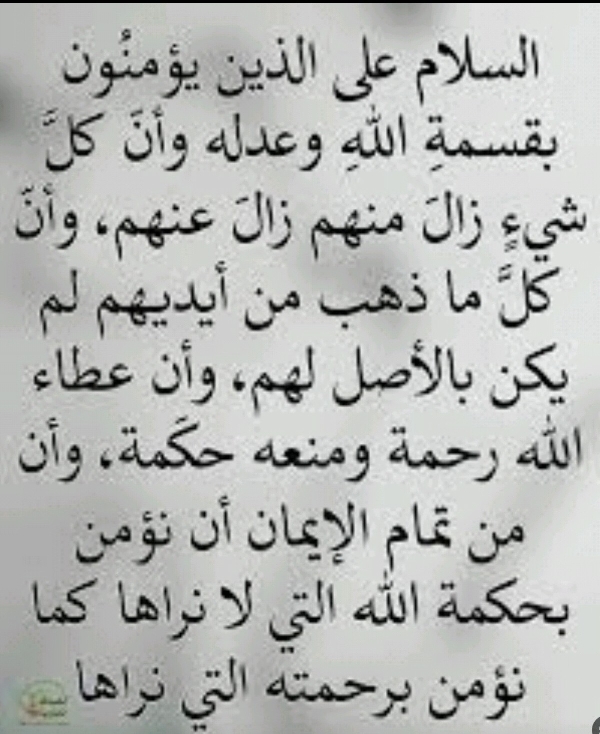 السلام على الذين يؤمنُون
بقسمةِ اللهِ وعدله وأنّ كلَّ
شيءٍ زالَ منهم زالَ عنهم، وأنّ
كلَّ ما ذهب من أيديهم لم
يكن بالأصل لهم، وأن عطاء
الله رحمة ومنعه حكَمة، وأن
من تمام الإيمان أن نؤمن
بحكمة الله التي لا نراها كما
نؤمن برحمته التي نراها